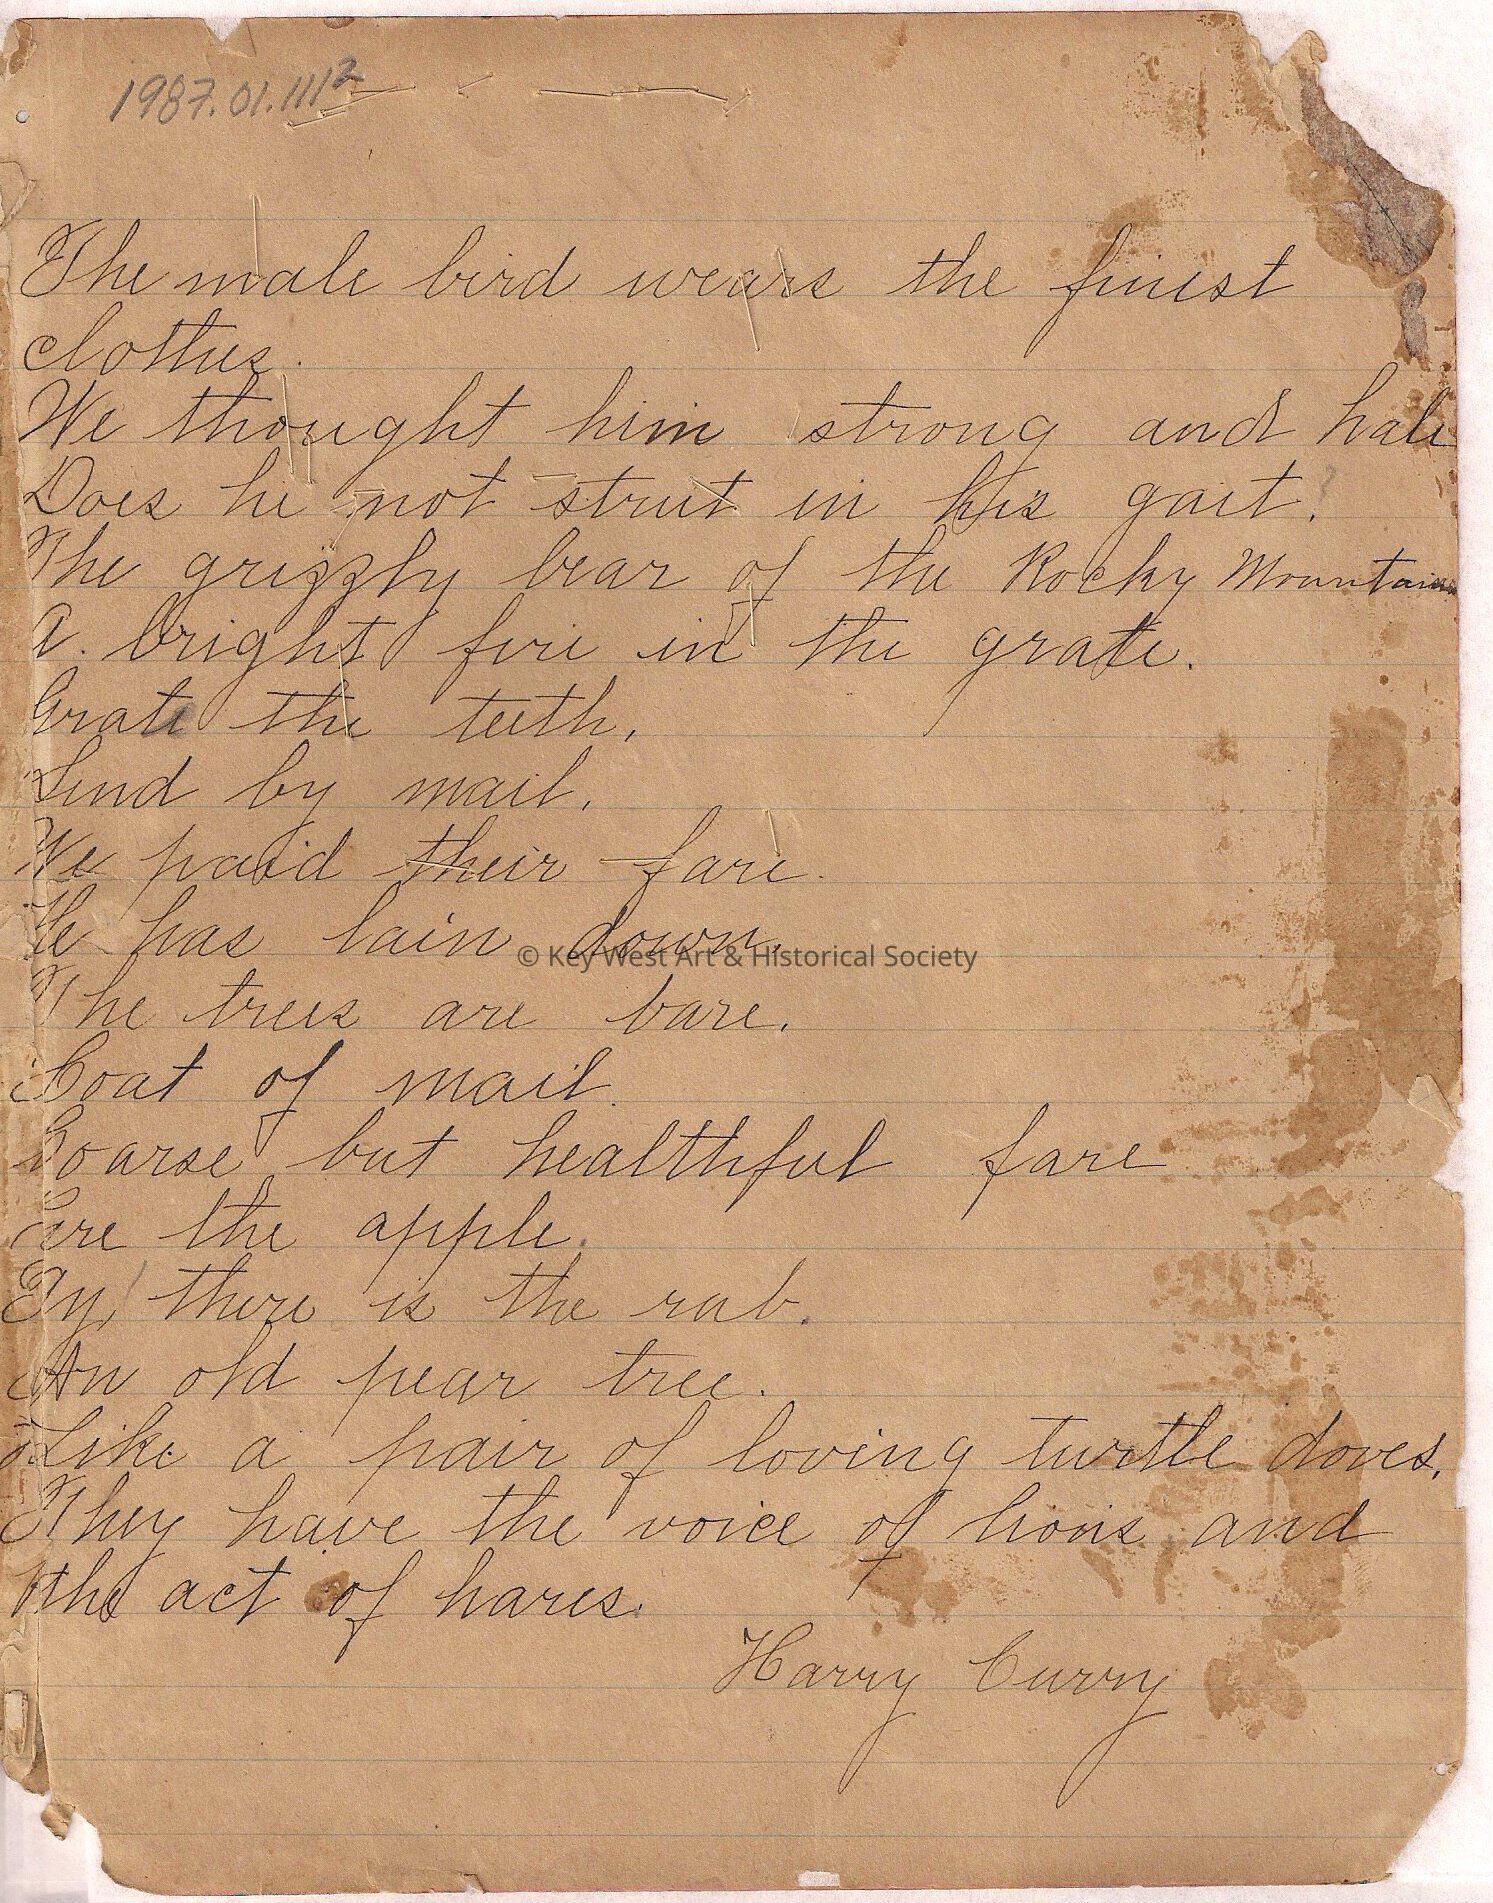 1987.01.111²
The male bird wears the finest
clothes.
We thought him strong and hale
Does he not strut in his gait?
The grizzly bear of the Rocky Mountains
A bright fire in the grate.
Grate the teeth,
Send by mail,
We paid their fare.
He has lain down,
© Key West Art & Historical Society
The trees are bare.
Coat of mail.
Coarse but healthful fare
Pare the apple.
Ay, there is the rub.
An old pear tree.
Like a pair of loving turtle doves,
They have the voice of lions and
the act of hares.
Harry Curry